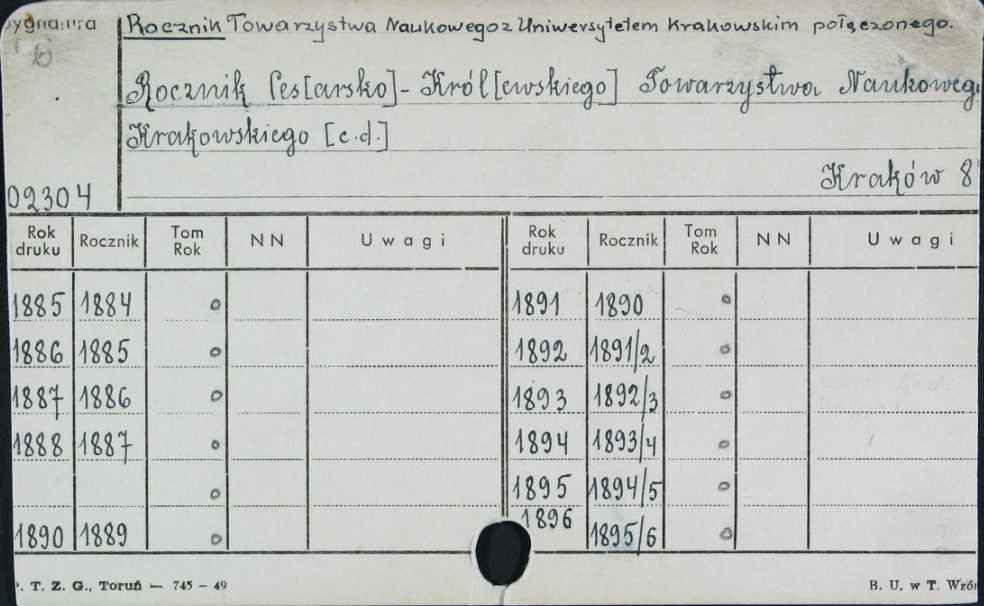 Sygnatura
Rocznik Towarzystwa Naukowego z Uniwersytetem Krakowskim połączonego.
Rocznik Ces[arsko]-Król[ewskiego] Towarzystwa Naukoweg
Krakowskiego [c.d.]
Kraków 8
02304
Rok druku Rocznik Tom Rok NN Uwagi Rok druku Rocznik Tom Rok NN Uwagi
1885 1884 o 1891 1890 o
1886 1885 o 1892 1891/2 o
1887 1886 o 1893 1892/3 o
1888 1887 o 1894 1893/4 o
o 1895 1894/5 o
1890 1889 o 1896 1895/6 o
P. T. Z. G., Toruń — 745 – 49 B. U. w T. Wzór